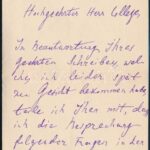 Hochgeehrter Herr College,
In Beantwortung Ihres
geehrten Schreibens, wel-
ches ich leider spät
zu Gesicht bekommen habe,
teile ich Ihnen mit, daß
ich die Besprechung
folgender Fragen in der